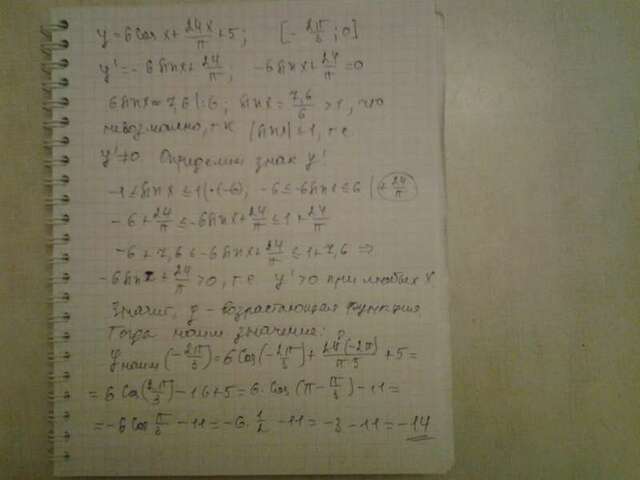 y = 6 cos x + 24x/π + 5; [-2π/3; 0]
y' = -6 sin x + 24/π; -6 sin x + 24/π = 0
6 sin x = 7,6 |:6; sin x = 7,6/6 > 1, что
невозможно, т.к |sin x| ≤ 1, т.е
y' ≠ 0. Определим знак y'
-1 ≤ sin x ≤ 1 |·(-6), -6 ≤ -6 sin x ≤ 6 | + 24/π
-6 + 24/π ≤ -6 sin x + 24/π ≤ 1 + 24/π
-6 + 7,6 ≤ -6 sin x + 24/π ≤ 1 + 7,6 ⇒
-6 sin x + 24/π > 0, т.е y' > 0 при любых x
Значит, y - возрастающая функция.
Тогда наим значение:
y наим (-2π/3) = 6 cos(-2π/3) + 24·(-2π)/π·3 + 5 =
= 6 cos(2π/3) - 16 + 5 = 6·cos(π - π/3) - 11 =
= -6 cos π/3 - 11 = -6·1/2 - 11 = -3 - 11 = -14